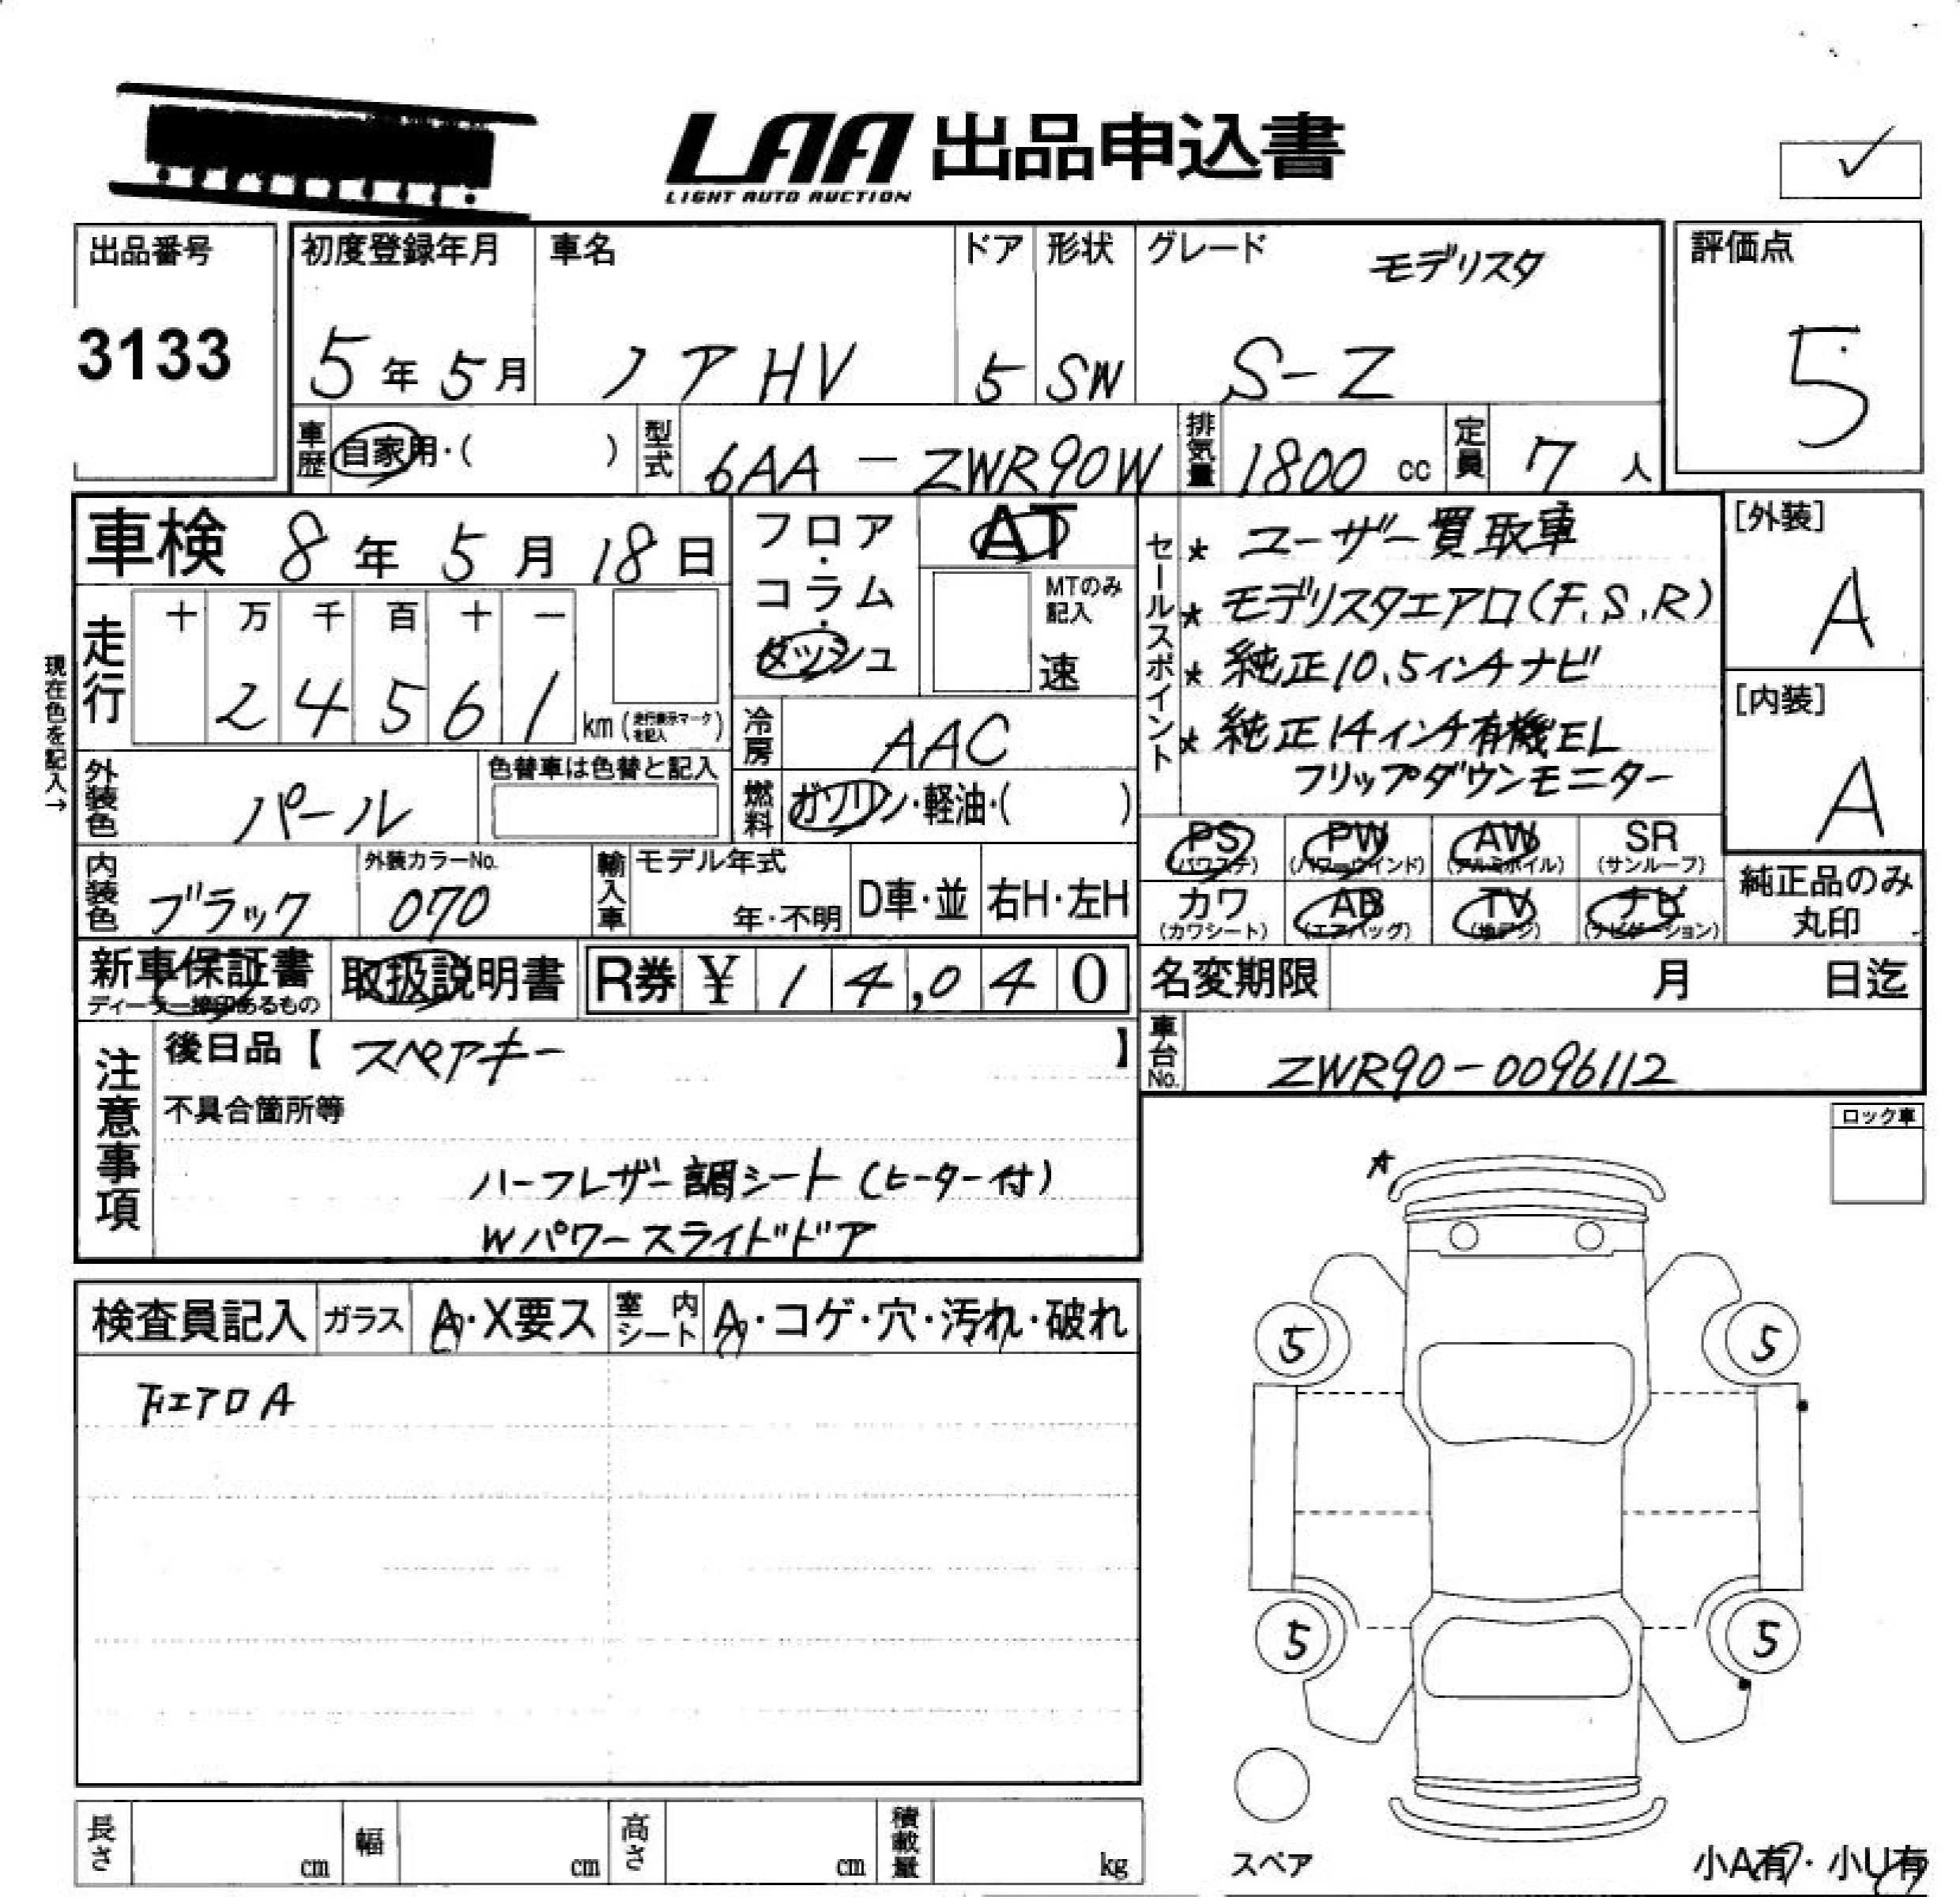 LAA 出品申込書
LIGHT AUTO AUCTION
出品番号
3133
初度登録年月
5年5月
車名
ノア HV
ドア
5
形状
SW
グレード
モデリスタ
S-Z
評価点
5
車歴
自家用・( )
型式
6AA - ZWR90W
排気量
1800 cc
定員
7 人
車検 8年5月18日
フロア・コラム・ダッシュ
AT
MTのみ記入
速
現在色を記入→
走行
十 万 千 百 十 一
2 4 5 6 1 km (走行表示マークを記入)
冷房
AAC
外装色
パール
色替車は色替と記入
燃料
ガソリン・軽油・( )
内装色
ブラック
外装カラーNo.
070
輸入車
モデル年式
年・不明
D車・並
右H・左H
セールスポイント
★ ユーザー買取車
★ モデリスタエアロ(F.S.R)
★ 純正10.5インチナビ
★ 純正14インチ有機EL
フリップダウンモニター
[外装]
A
[内装]
A
PS (パワステ)
PW (パワーウインド)
AW (アルミホイル)
SR (サンルーフ)
カワ (カワシート)
AB (エアバッグ)
TV (地デジ)
ナビ (ナビゲーション)
純正品のみ
丸印
新車保証書
ディーラー捺印あるもの
取扱説明書
R券 ¥ 14,040
名変期限 月 日迄
車台No.
ZWR90-0096112
注意事項
後日品【 スペアキー 】
不具合箇所等
ハーフレザー調シート(ヒーター付)
Wパワースライドドア
ロック車
検査員記入
ガラス
A・X要ス
室内シート
A・コゲ・穴・汚れ・破れ
下エアロA
A
5 5
5 5
スペア
小A有・小U有
長さ cm
幅 cm
高さ cm
積載量 kg